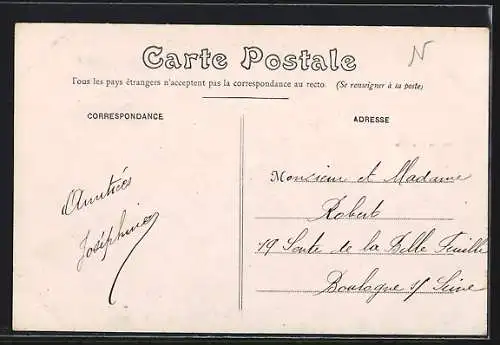 Carte Postale
N
Tous les pays étrangers n'acceptent pas la correspondance au recto. (Se renseigner à la poste)
CORRESPONDANCE
ADRESSE
Amitiés
Joséphine
Monsieur et Madame
Robert
19 Sente de la Belle Feuille
Boulogne s/ Seine